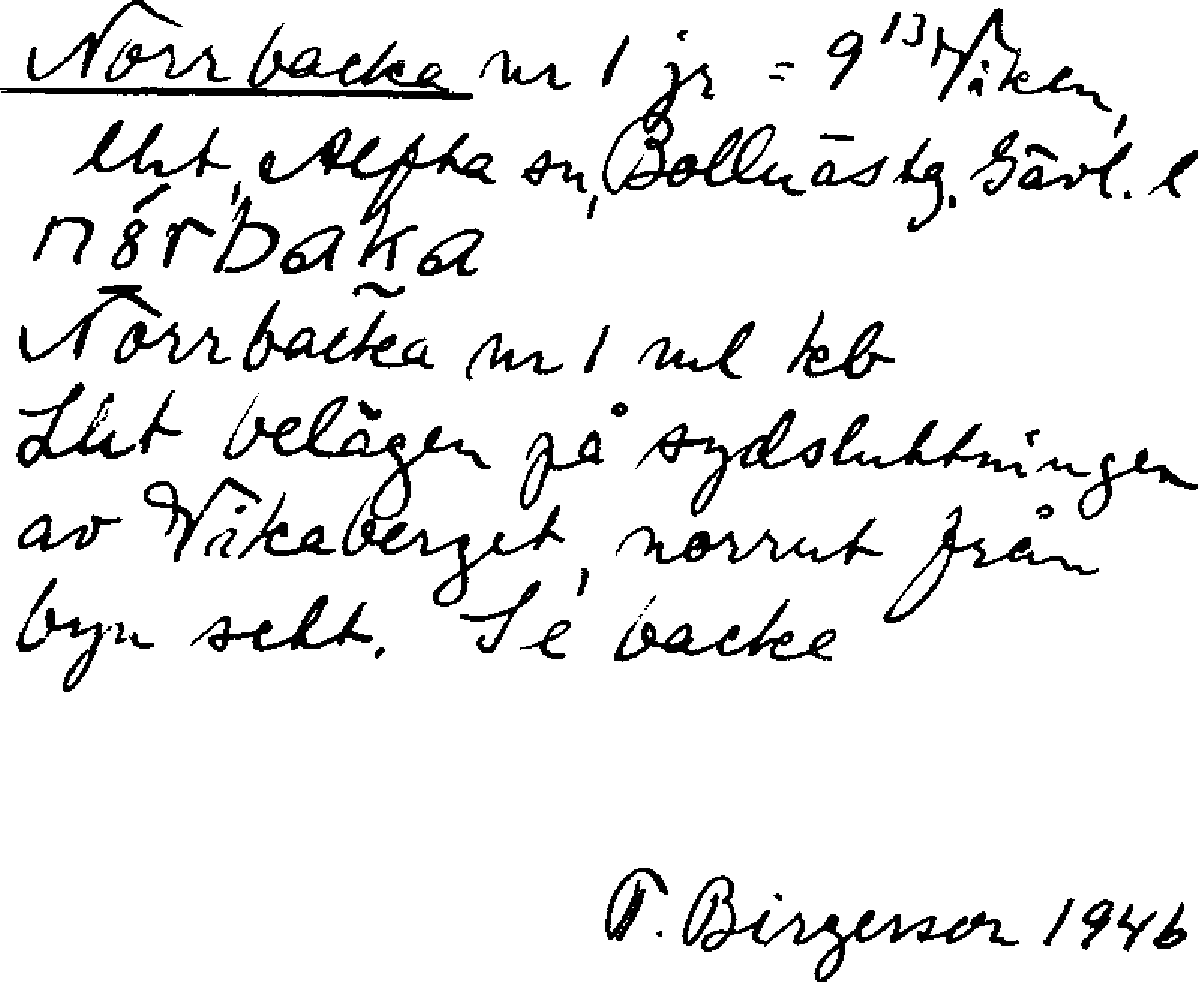 Norrbacka nr 1 jr = 9¹³ Viken,
lht, Alfta sn, Bollnäs tg. Gävl. l
Norrbacka nr 1 ml kb
Lht belägen på sydsluttningen
av Vikaberget, norrut från
byn sett. Se backe
T. Birgerson 1946